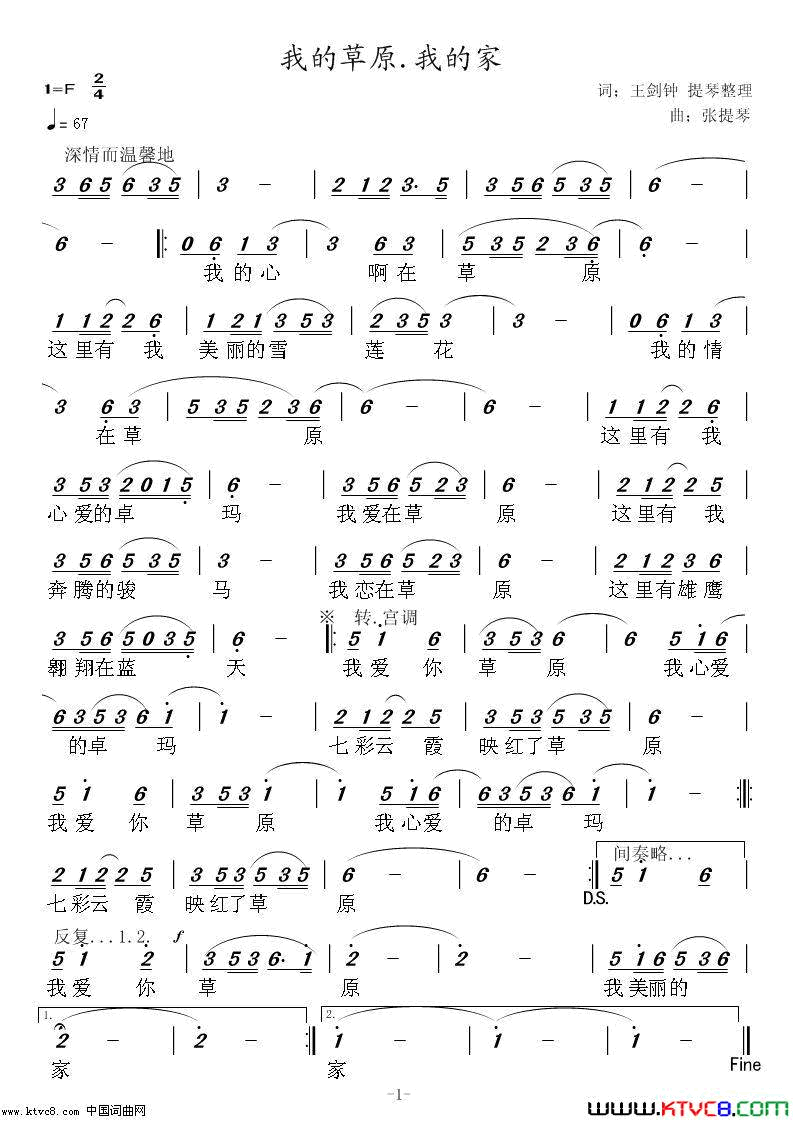 我的草原.我的家
1=F 2/4
词；王剑钟 提琴整理
♩= 67
曲；张提琴
深情而温馨地
3 6 5 6 3 5 | 3 － | 2 1 2 3· 5 | 3 5 6 5 3 5 | 6 － |
6 － |: 0 6 1 3 | 3 6 3 | 5 3 5 2 3 6 | 6 － |
我的心 啊在 草 原
1 1 2 2 6 | 1 2 1 3 5 3 | 2 3 5 3 | 3 － | 0 6 1 3 |
这里有 我 美丽的雪 莲 花 我的情
3 6 3 | 5 3 5 2 3 6 | 6 － | 6 － | 1 1 2 2 6 |
在草 原 这里有 我
3 5 3 2 0 1 5 | 6 － | 3 5 6 5 2 3 | 6 － | 2 1 2 2 5 |
心爱的卓 玛 我爱在草 原 这里有 我
3 5 6 5 3 5 | 3 － | 3 5 6 5 2 3 | 6 － | 2 1 2 3 6 |
奔腾的骏 马 我恋在草 原 这里有雄鹰
※ 转.宫调
3 5 6 5 0 3 5 | 6 － |: 5 1 6 | 3 5 3 6 | 6 5 1 6 |
翱翔在蓝 天 我爱你 草 原 我心爱
6 3 5 3 6 1 | 1 － | 2 1 2 2 5 | 3 5 3 5 3 5 | 6 － |
的卓 玛 七彩云 霞 映红了草 原
5 1 6 | 3 5 3 1 | 1 5 1 6 | 6 3 5 3 6 1 | 1 － :|
我爱你 草 原 我心爱 的卓 玛
间奏略...
2 1 2 2 5 | 3 5 3 5 3 5 | 6 － | 6 － :| 5 1 6 |
D.S.
七彩云 霞 映红了草 原
反复...1.2. f
5 1 2 | 3 5 3 6· 1 | 2 － | 2 － | 5 1 6 5 3 6 |
我爱你 草 原 我美丽的
1. 2.
2 － | 2 － :| 1 － | 1 － |
家 家
Fine
-1-
www.ktvc8.com 中国词曲网
WWW.KTVC8.COM